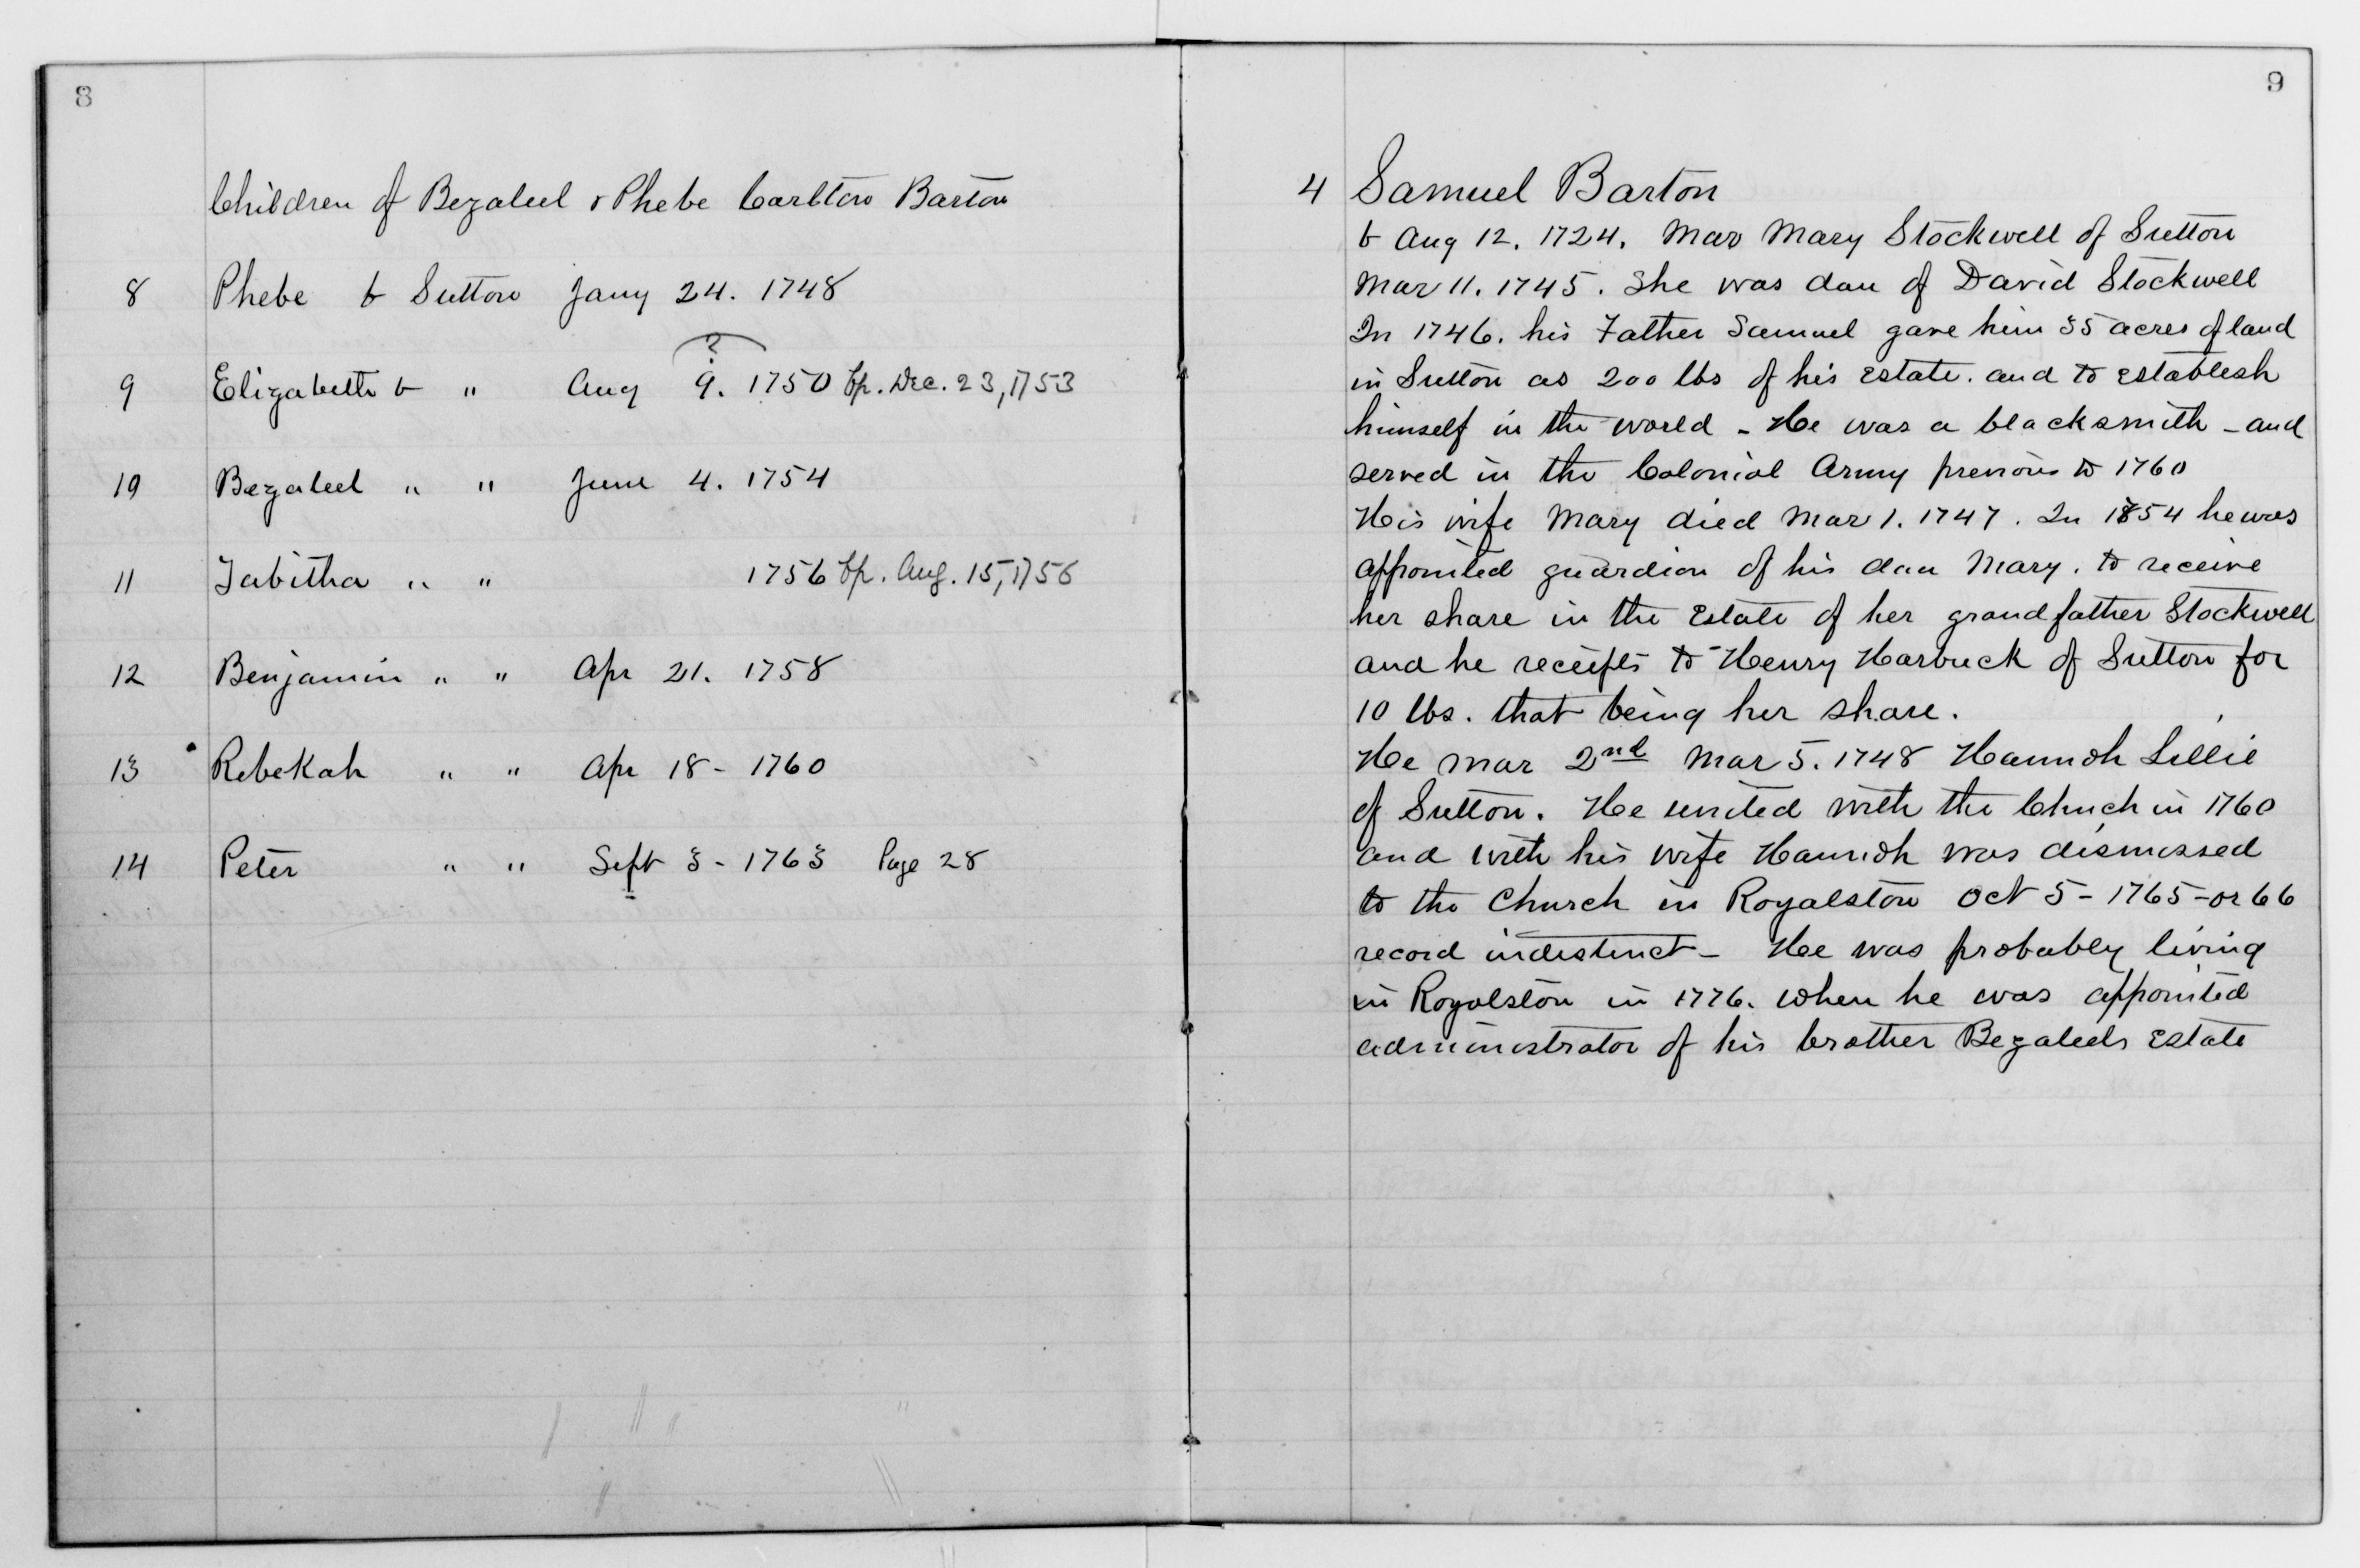 8
Children of Bezaleel & Phebe Carlton Barton
8 Phebe b Sutton Jany 24. 1748
?
9 Elizabeth b " Aug 9. 1750 bp. Dec. 23, 1753
10 Bezaleel " " June 4. 1754
11 Tabitha " " 1756 bp. Aug. 15, 1756
12 Benjamin " " Apr 21. 1758
13 Rebekah " " Apr 18 - 1760
14 Peter " " Sept 3 - 1763 Page 28
9
4 Samuel Barton
b Aug 12. 1724. Mar Mary Stockwell of Sutton
Mar 11. 1745. She was dau of David Stockwell
In 1746. his Father Samuel gave him 35 acres of land
in Sutton as 200 lbs of his Estate. and to Establish
himself in the world - He was a blacksmith - and
served in the Colonial Army previous to 1760
His wife Mary died Mar 1. 1747. In 1854 he was
appointed guardian of his dau Mary. to receive
her share in the Estate of her grandfather Stockwell
and he receipts to Henry Harbuck of Sutton for
10 lbs. that being her share.
He mar 2nd Mar 5. 1748 Hannah Lillie
of Sutton. He united with the Chuch in 1760
and with his wife Hannah was dismissed
to the Church in Royalston Oct 5 - 1765 - or 66
record indistinct - He was probably living
in Royalston in 1776. when he was appointed
administrator of his brother Bezaleels Estate